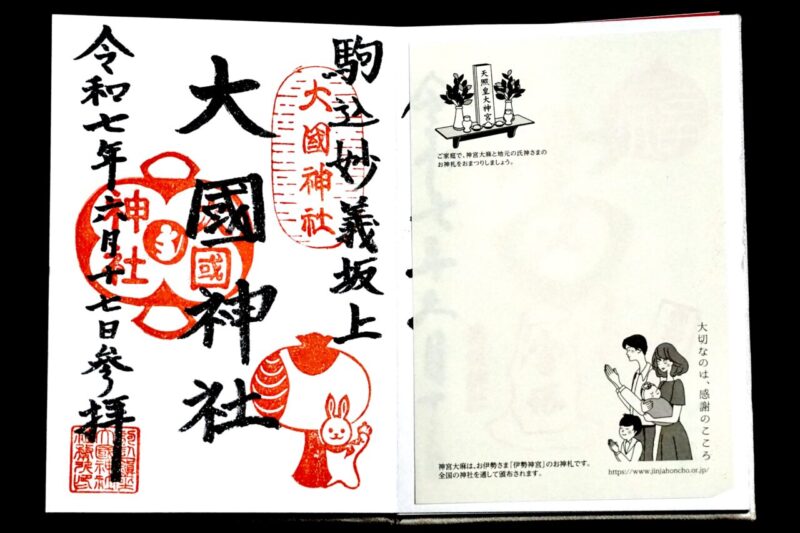 駒込妙義坂上
大國神社
令和七年六月十七日参拝
大國神社
神社
國
天照皇大神宮
ご家庭で、神宮大麻と地元の氏神さまの
お神札をおまつりしましょう。
大切なのは、感謝のこころ
神宮大麻は、お伊勢さま「伊勢神宮」のお神札です。
全国の神社を通して頒布されます。
https://www.jinjahoncho.or.jp/